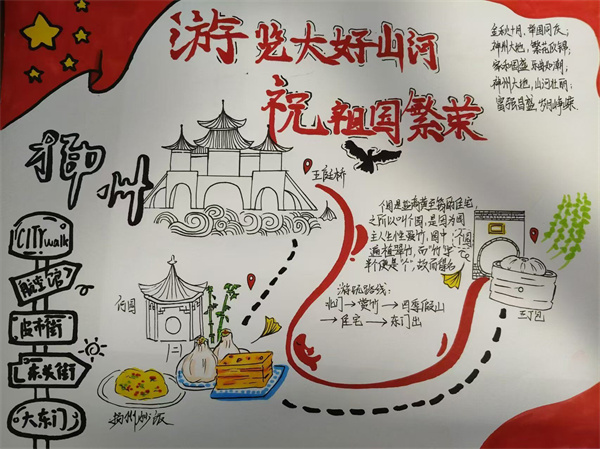 游览大好山河
祝祖国繁荣
金秋十月,举国同庆;
神州大地,繁花似锦,
家和国盛
神州大地,山河壮丽;
富强昌盛
CITY walk
皮市街
东关街
大东门
个园是
之所以叫个园,是因为园
主人生性爱竹,园中
遍植翠竹,而"竹"字
半个便是"个",故而得名
游玩路线:
北门→赏竹→四季假山
→住宅→东门出
个园
三丁包
扬州炒饭